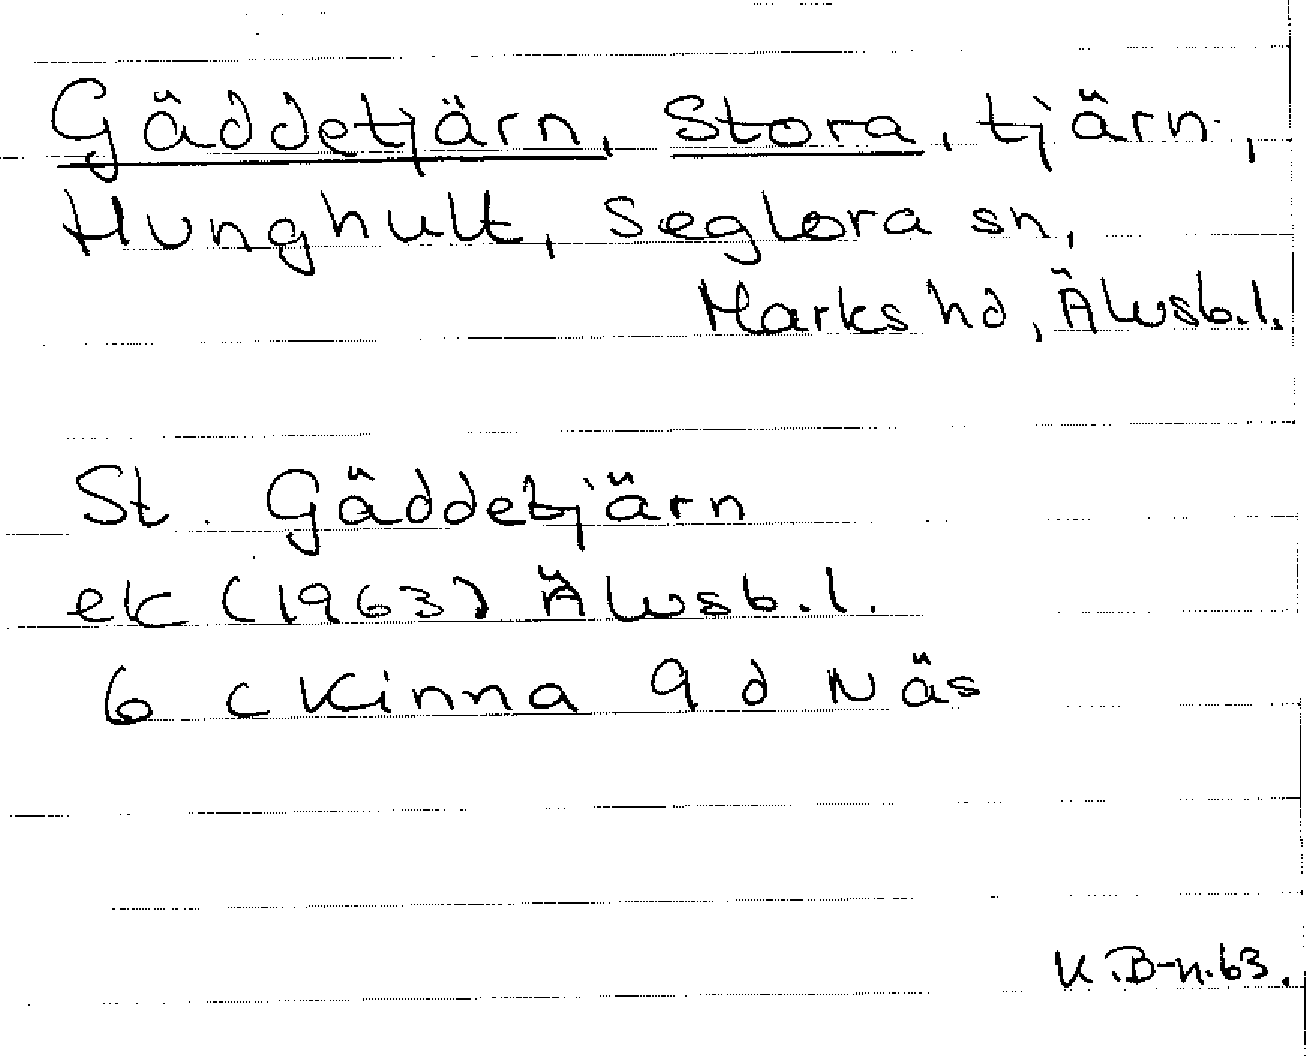 Gäddetjärn, Stora, tjärn,
Hunghult, Seglora sn,
Marks hd, Älvsb.l.
St. Gäddetjärn
ek (1963) Älvsb.l.
6 C Kinna 9 d Näs
K.B-n.63.